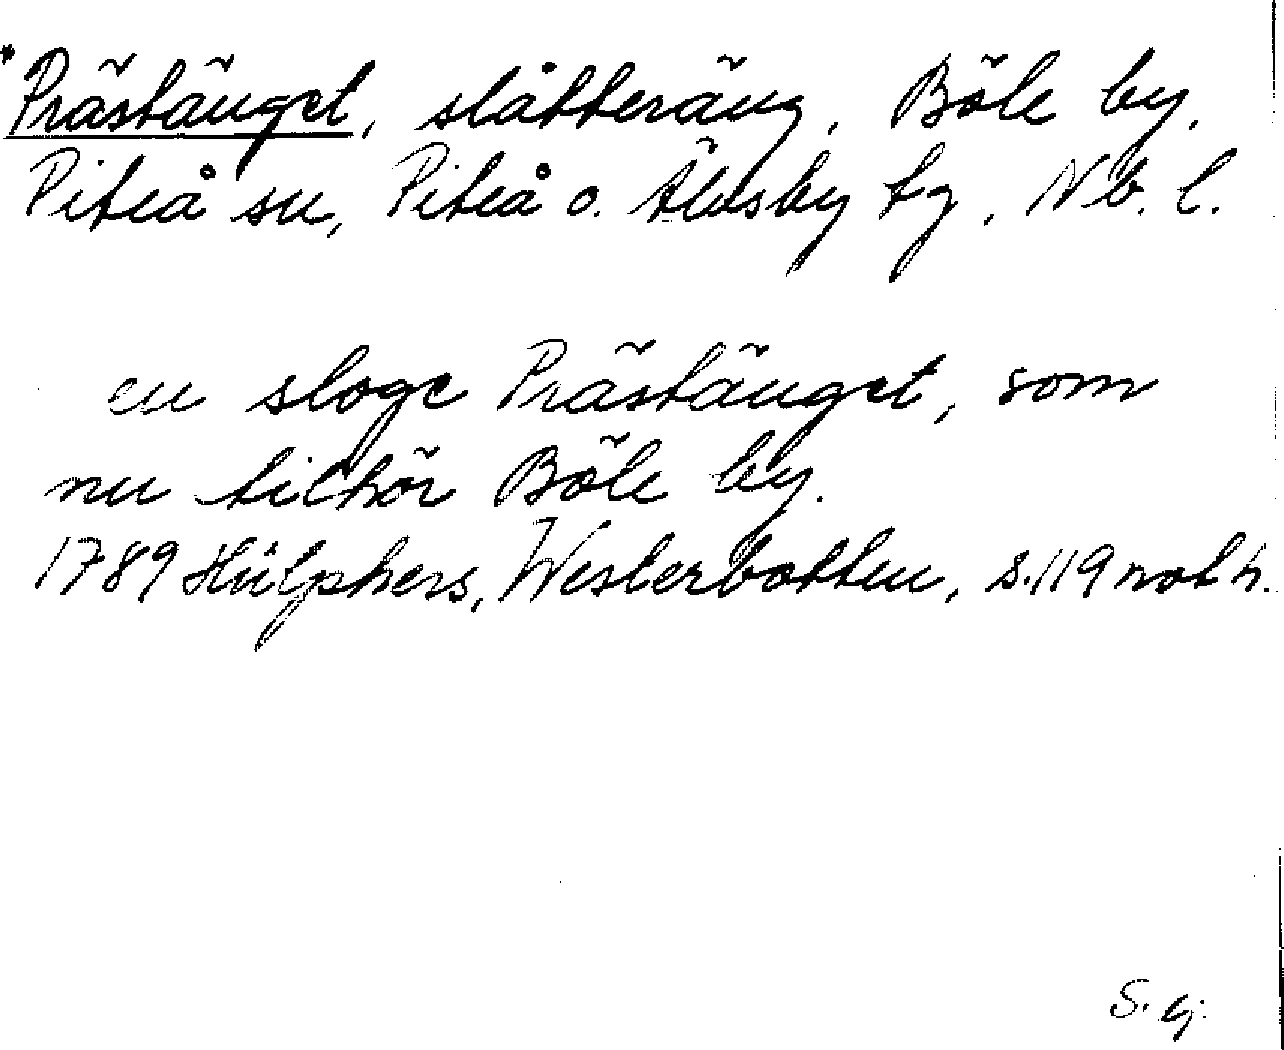 *Prästänget, slåtteräng, Böle by,
Piteå sn, Piteå o. Älvsby tg, Nb. l.
en sloge Prästänget, som
nu tilhör Böle by.
1789 Hülphers, Westerbotten, s. 119 not h.
S. G.